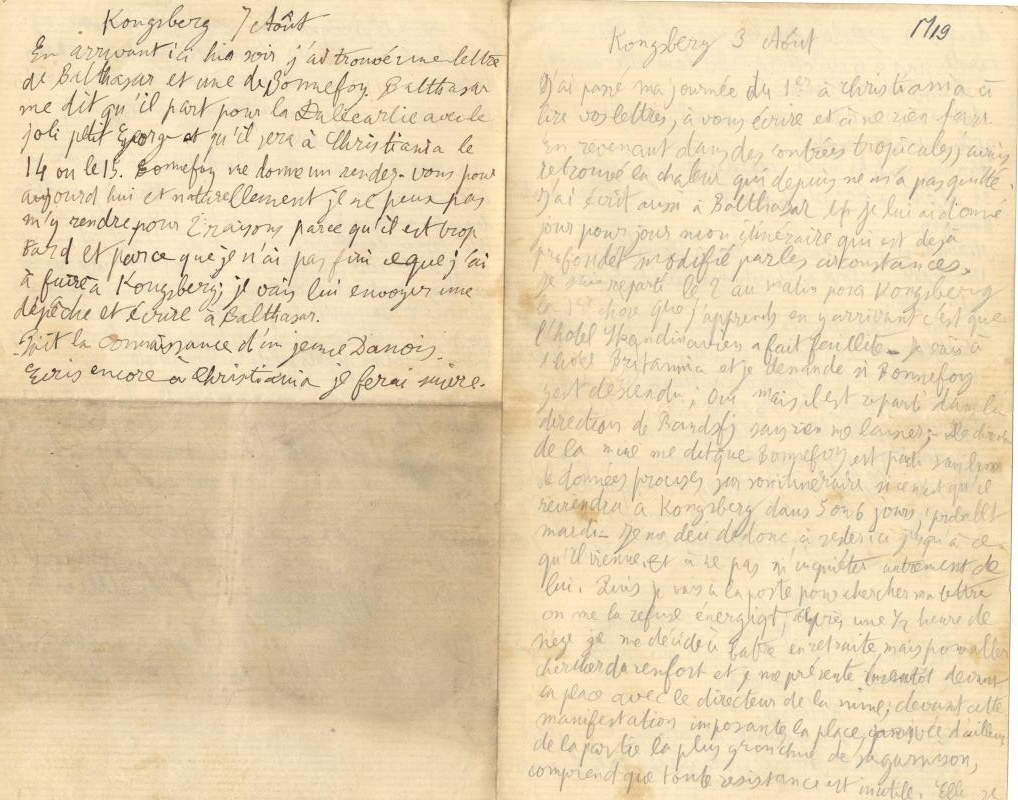 Kongsberg 7 Août
En arrivant ici hier soir j'ai trouvé une lettre
de Balthasar et une de Bonnefoy. Balthasar
me dit qu'il part pour la Dalécarlie avec le
joli ptit George et qu'il sera à Christiania le
14 ou le 15. Bonnefoy me donne un rendez-vous pour
aujourd'hui et naturellement je ne peux pas
m'y rendre pour 2 raisons parce qu'il est trop
tard et parce que je n'ai pas fini ce que j'ai
à faire à Kongsberg; je vais lui envoyer une
dépêche et écrire à Balthasar.
Fait la connaissance d'un jeune Danois.
Ecris encore à Christiania je ferai suivre.
1719
Kongsberg 3 Août
J'ai passé ma journée du 1er à Christiania à
lire vos lettres, à vous écrire et à ne rien faire.
En revenant dans des contrées tropicales j'avais
retrouvé la chaleur qui depuis ne m'a pas quitté.
J'ai écrit aussi à Balthasar et je lui ai donné
jour pour jour mon itinéraire qui est déjà
profondet modifié par les circonstances.
Je suis reparti le 2 au matin pour Kongsberg
la 1re chose que j'apprends en y arrivant c'est que
l'hôtel Skandinavien a fait faillite. Je vais à
l'hôtel Britannia et je demande si Bonnefoy
y est descendu; oui mais il est reparti dans la
direction de Randsfj sans rien me laisser; Le direct
de la mine me dit que Bonnefoy est parti sans
de données précises sur son itinéraire si ce n'est qu'il
reviendra à Kongsberg dans 5 ou 6 jours, probablt
mardi. Je me décide donc à rester ici jusqu'à ce
qu'il vienne et à ne pas m'inquiéter autrement de
lui. Puis je vais à la poste pour chercher ma lettre
on me la refuse énergiqt; après une 1/2 heure de
siège je me décide à battre en retraite, mais pour aller
chercher du renfort et je me présente bientôt devant
la place avec le directeur de la mine; devant cette
manifestation imposante la place, d'ailleurs
de la partie la plus grincheuse de sa garnison,
comprend que toute résistance est inutile. Elle se